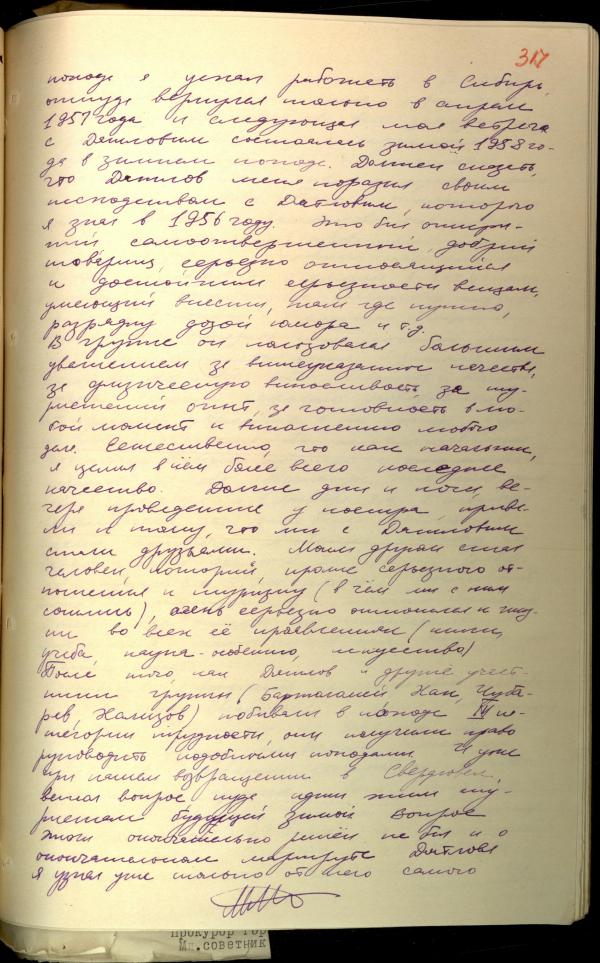 317
походе я уехал работать в Сибирь,
откуда вернулся только в апреле
1957 года и следующая моя встреча
с Дятловым состоялась зимой 1958 го-
да в зимнем походе. Должен сказать,
что Дятлов меня поразил своим
несходством с Дятловым, которого
я знал в 1956 году. Это был
самоотверженный, добрый
товарищ, серьезно относящийся
к достойным серьезности вещам,
умеющий внести, там где нужно,
разрядку дозой юмора и т.д.
В группе он пользовался большим
уважением за вышеуказанные качества,
за физическую выносливость, за ту-
ристский опыт, за готовность в лю-
бой момент к выполнению любого
дела. Естественно, что как начальник,
я ценил в нём более всего последнее
качество. Долгие дни и ночи, ве-
чера проведенные у костра, приве-
ли к тому, что мы с Дятловым
стали друзьями. Моим другом стал
человек, который, кроме серьезного от-
ношения к туризму (в чём мы с ним
сошлись), очень серьезно относился к жиз-
ни во всех её проявлениях (книги,
учеба, наука - особенно, искусство)
После того, как Дятлов и другие участ-
ники группы (Бартоломей, Хан, Чуба-
рев, Хализов) побывали в походе III ка-
тегории трудности, они получили право
руководить подобными походами. И уже
при нашем возвращении в Свердловск,
встал вопрос куда идти этим ту-
ристам будущей зимой. Вопрос
этот окончательно решён не был и о
окончательном маршруте Дятлова
я узнал уже только от него самого
Прокурор
Мл.советник